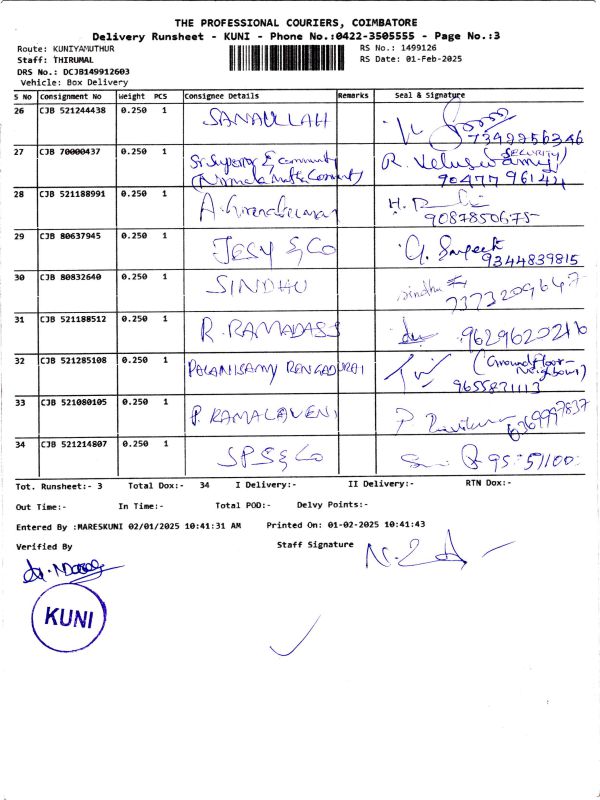 THE PROFESSIONAL COURIERS, COIMBATORE
Delivery Runsheet - KUNI - Phone No.:0422-3505555 - Page No.:3
Route: KUNIYAMUTHUR RS No.: 1499126
Staff: THIRUMAL RS Date: 01-Feb-2025
DRS No.: DCJB149912603
Vehicle: Box Delivery
S No Consignment No Weight PCS Consignee Details Remarks Seal & Signature
26 CJB 521244438 0.250 1 SANAULLAH
7349956346
27 CJB 70000437 0.250 1 Sr. Superior & Community R. Veluswamy (SECURITY)
(Nirmala Matha Convent) 90477 96144
28 CJB 521188991 0.250 1
9087850675
29 CJB 80637945 0.250 1 JESY & CO G.
9344839815
30 CJB 80832640 0.250 1 SINDHU Sindhu
7373209647
31 CJB 521188512 0.250 1 R. RAMADASS 9629620216
32 CJB 521285108 0.250 1 PALANISAMY RENGADURAI (Ground floor-
Neighbour)
9655871113
33 CJB 521080105 0.250 1 P. RAMALAVENI P
6369997837
34 CJB 521214807 0.250 1 SPS & Co
Tot. Runsheet:- 3 Total Dox:- 34 I Delivery:- II Delivery:- RTN Dox:-
Out Time:- In Time:- Total POD:- Delvy Points:-
Entered By :MARESKUNI 02/01/2025 10:41:31 AM Printed On: 01-02-2025 10:41:43
Verified By Staff Signature
KUNI